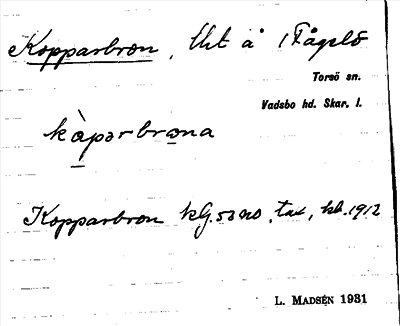 Kopparbron, Uht å Fågelö
Torsö sn.
Vadsbo hd. Skar. l.
kàpərbrəna
Kopparbron kG. 53 no, tax, kb. 1912
L. MADSÉN 1931